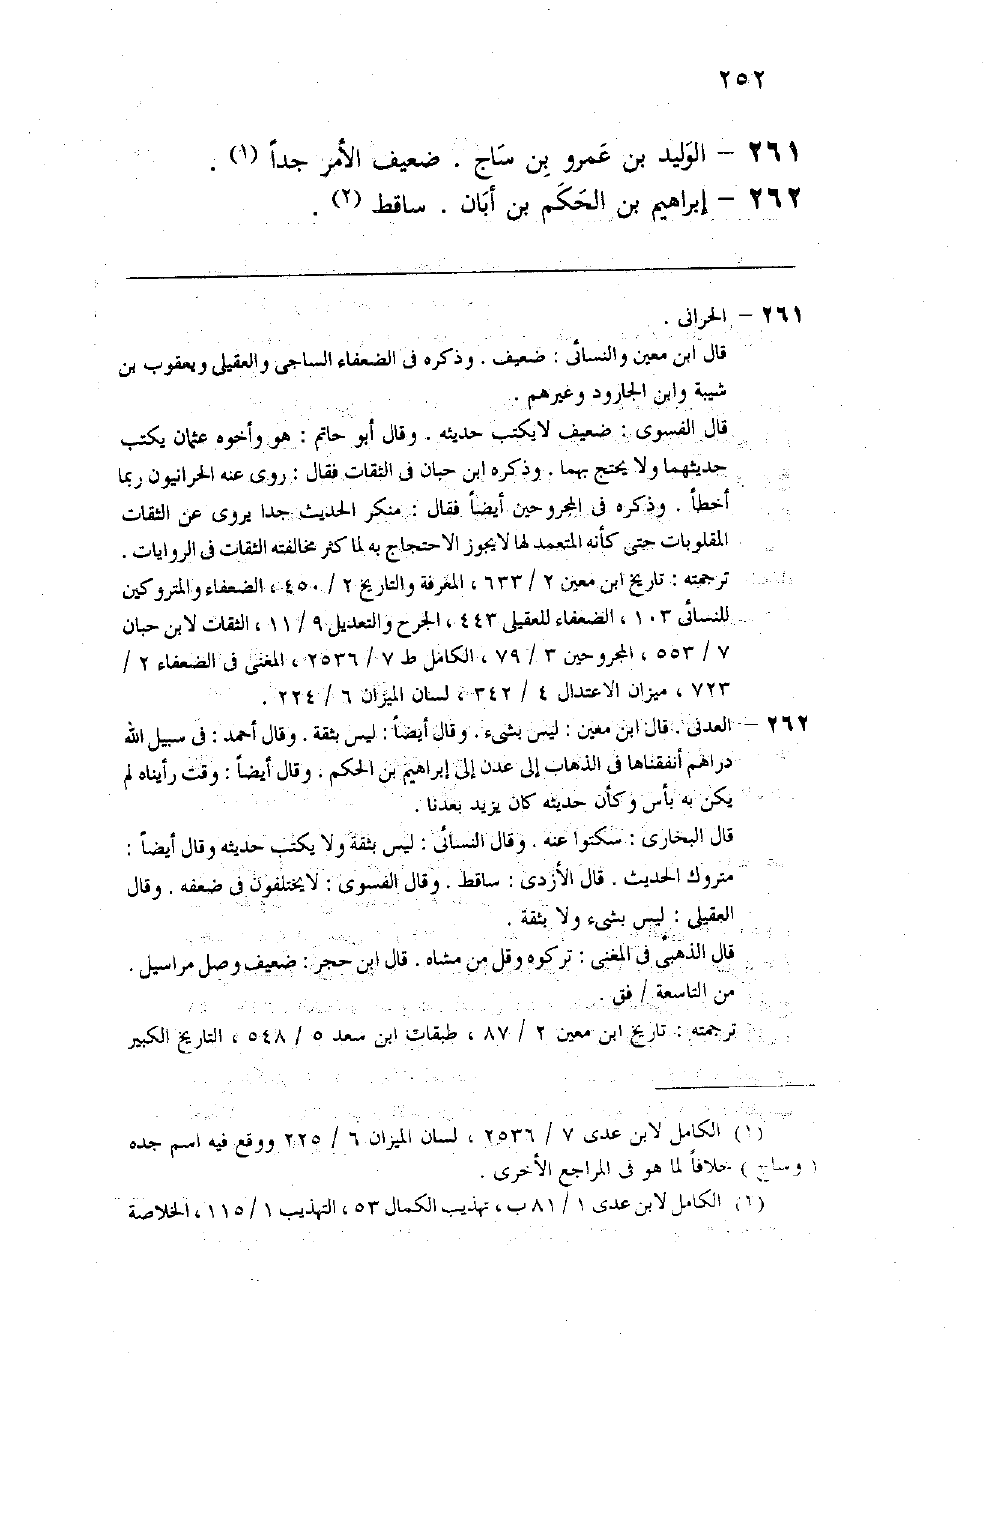 ٢٥٢
٢٦١ – الوَليد بن عَمرو بِن سَاج . ضعيف الأمر جداً (١) .
٢٦٢ – إبراهيم بن الحَكَم بن أبَان . ساقط (٢) .
٢٦١ – الحرانى .
قال ابن معين والنسائى : ضعيف . وذكره فى الضعفاء الساجى والعقيلى ويعقوب بن
شيبة وابن الجارود وغيرهم .
قال الفسوى : ضعيف لايكتب حديثه . وقال أبو حاتم : هو وأخوه عثمان يكتب
حديثهما ولا يحتج بهما . وذكره ابن حبان فى الثقات فقال : روى عنه الحرانيون ربما
أخطأ . وذكره فى المجروحين أيضاً فقال : منكر الحديث جدا يروى عن الثقات
المقلوبات حتى كأنه المتعمد لها لايجوز الاحتجاج به لما كثر مخالفته الثقات فى الروايات .
ترجمته : تاريخ ابن معين ٢ / ٦٣٣ ، المعرفة والتاريخ ٢ / ٤٥٠ ، الضعفاء والمتروكين
للنسائى ١٠٣ ، الضعفاء للعقيلى ٤٤٣ ، الجرح والتعديل ٩ / ١١ ، الثقات لابن حبان
٧ / ٥٥٣ ، المجروحين ٣ / ٧٩ ، الكامل ط ٧ / ٢٥٣٦ ، المغنى فى الضعفاء ٢ /
٧٢٣ ، ميزان الاعتدال ٤ / ٣٤٢ ، لسان الميزان ٦ / ٢٢٤ .
٢٦٢ – العدنى . قال ابن معين : ليس بشىء . وقال أيضاً : ليس بثقة . وقال أحمد : فى سبيل الله
دراهم أنفقناها فى الذهاب إلى عدن إلى إبراهيم بن الحكم . وقال أيضاً : وقت رأيناه لم
يكن به بأس وكأن حديثه كان يزيد بعدنا .
قال البخارى : سكتوا عنه . وقال النسائى : ليس بثقة ولا يكتب حديثه وقال أيضاً :
متروك الحديث . قال الأزدى : ساقط . وقال الفسوى : لايختلفون فى ضعفه . وقال
العقيلى : ليس بشىء ولا بثقة .
قال الذهبى فى المغنى : تركوه وقل من مشاه . قال ابن حجر : ضعيف وصل مراسيل .
من التاسعة / فق .
ترجمته : تاريخ ابن معين ٢ / ٨٧ ، طبقات ابن سعد ٥ / ٥٤٨ ، التاريخ الكبير
(١) الكامل لابن عدى ٧ / ٢٥٣٦ ، لسان الميزان ٦ / ٢٢٥ ووقع فيه اسم جده
( وساج ) خلافاً لما هو فى المراجع الأخرى .
(٢) الكامل لابن عدى ١ / ٨١ ب ، تهذيب الكمال ٥٣ ، التهذيب ١ / ١١٥ ، الخلاصة